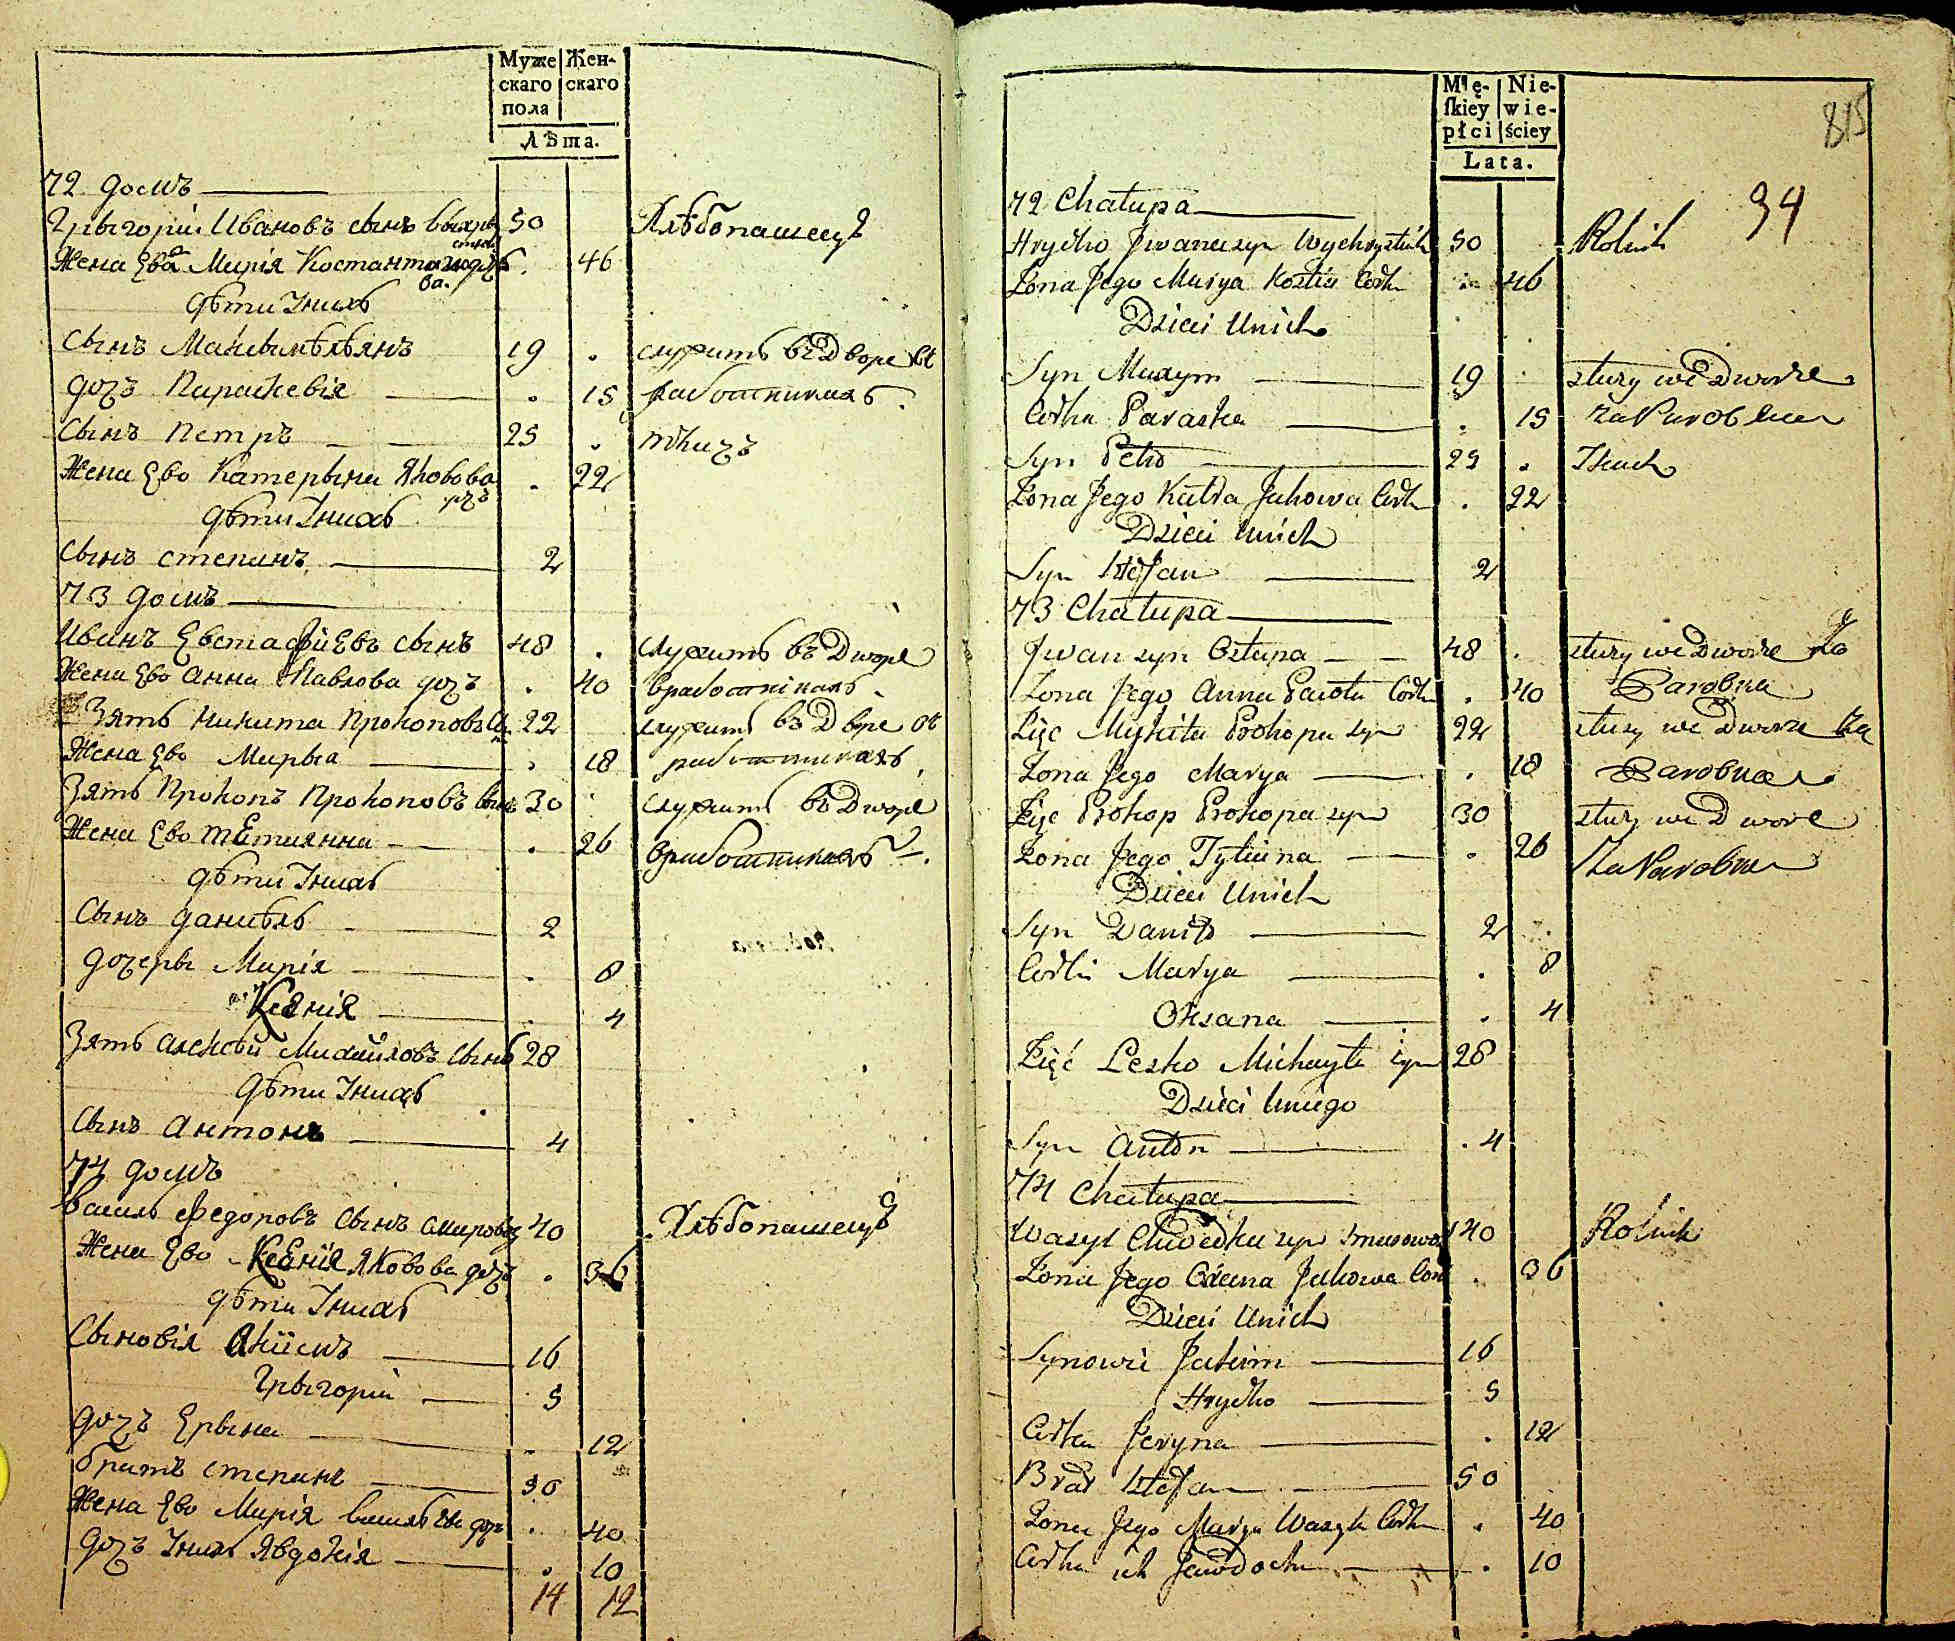 Муже Жен-
скаго скаго
пола
Лѣта.
72 домъ
Грыгорій Ивановъ сынъ 50 Хлѣбопашецъ
Жена Ево Марія 46
дѣти Ихъ
Сынъ 19 служитъ въ Дворе
дочъ Параскевія 15
Сынъ Петръ 25 ткачъ
Жена Ево Катерына Яковова 22
дочъ
дѣти Ихъ
Сынъ степанъ 2
73 домъ
Иванъ Евстафіевъ сынъ 48 служитъ въ Дворе
Жена Ево Анна Павлова дочъ 40
Зять Никита Прокоповъ 22 служитъ въ Дворе
Жена Ево Марыа 18
Зять Прокопъ Прокоповъ сынъ 30 служитъ въ Дворе
Жена Ево тЕтиянна 26
дѣти Ихъ
Сынъ даниѣль 2
дочеры Марія 8
Ксенія 4
Зять алексѣй Михайловъ сынъ 28
дѣти Ихъ
Сынъ антонъ 4
74 домъ
василь федоровъ сынъ 40 Хлѣбопашецъ
Жена Ево Ксенія Яковова дочъ 36
дѣти Ихъ
Сыновія Якіимъ 16
Грыгорій 5
дочъ Ерына 12
братъ степанъ 50
Жена Ево Марія дочъ 40
дочъ Ихъ Явдокія 10
14 12
Mę- Nie-
ſkiey wie-
płci ściey
Lata.
815
94
72 Chałupa
Hryćko Jwana syn 50 Rolnik
Żona Jego Marya Kostia Córka 46
Dzieci Unich
Syn Maxym 19 służy we dworze
Córka Paraska 15 za Parobka
Syn Petro 25 Tkach
Żona Jego Katra Jakowa Córka 22
Dzieci Unich
Syn Stefan 2
73 Chałupa
Jwan syn Ostapa 48 służy we Dworze Za
Żona Jego Anna Pawła Córka 40 Parobka
Zięć Mykita Prokopa syn 22 służy we Dworze Za
Żona Jego Marya 18 Parobka
Zięć Prokop Prokopa syn 30 służy we Dworze
Żona Jego Tytiana 26 Za Parobka
Dzieci Unich
Syn Daniło 2
Córki Marya 8
Oksana 4
Zięć Lesko Michayła syn 28
Dzieci Uniego
Syn Anton 4
74 Chałupa
Wasyl Chwedka syn 40 Rolnik
Żona Jego Jakowa Córka 36
Dzieci Unich
Synowie Jakim 16
Hryćko 5
Córka Jeryna 12
Brat Stefan 50
Żona Jego Marya Wasyla Córka 40
Córka ich Jawdocha 10